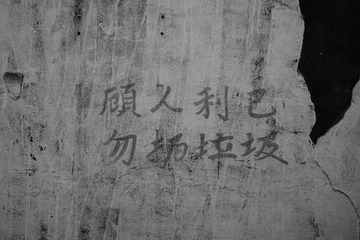 顧人利己
勿扔垃圾